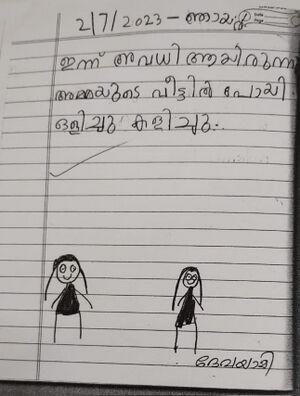 2/7/2023 - ഞായർ
ഇന്ന് അവധി ആയിരുന്നു
അമ്മയുടെ വീട്ടിൽ പോയി
ഒളിച്ചു കളിച്ചു..